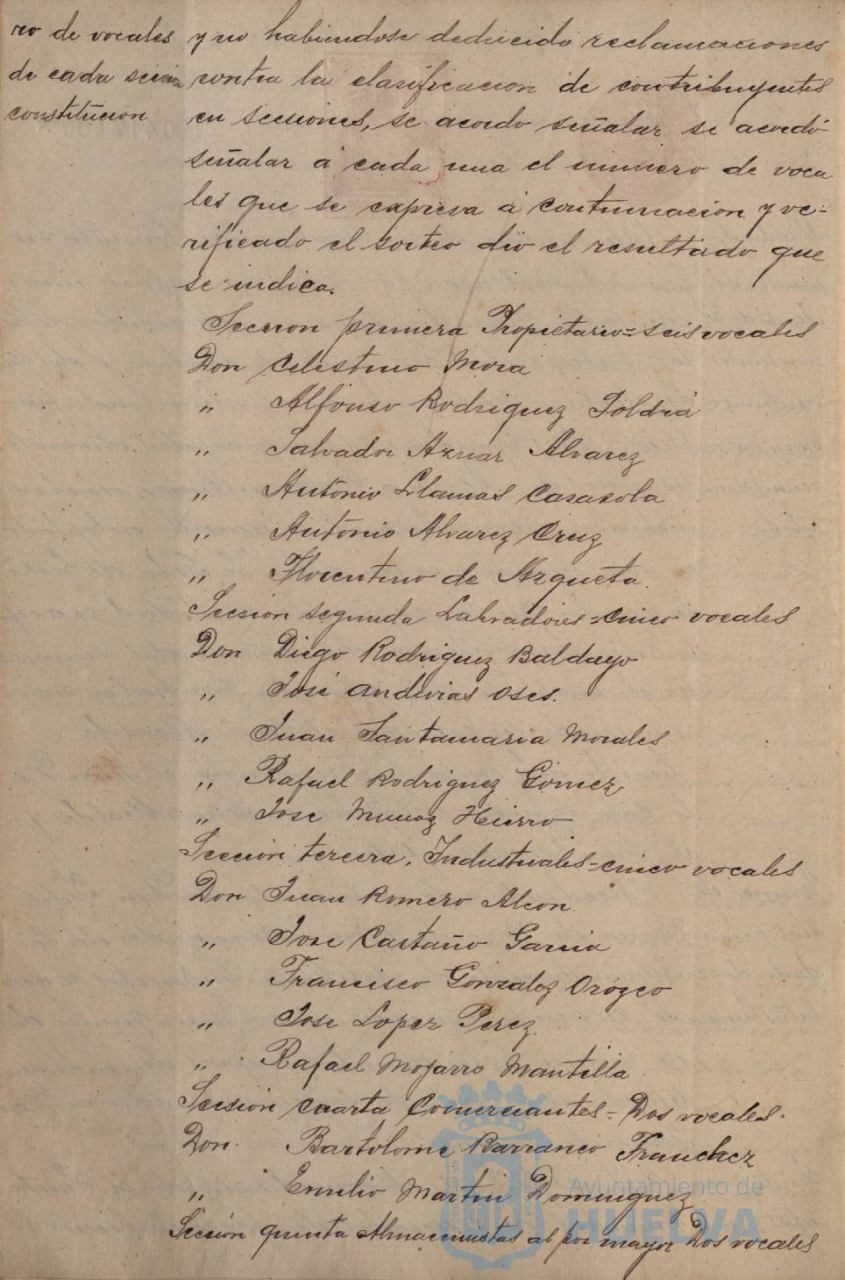 ro de vocales
de cada sección
constitucion
y no habiendose deducido reclamaciones
contra la clasificacion de contribuyentes
en secciones, se acordo señalar se acordó
señalar á cada una el número de voca
les que se expresa á continuacion y ve-
rificado el sorteo dió el resultado que
se indica.
Seccion primera Propietario=seis vocales
Don Celestino Mora
" Alfonso Rodriguez Toldrá
" Salvador Aznar Alvarez
" Antonio Llamas Casasola
" Antonio Alvarez Cruz
" Florentino de Azqueta.
Sección segunda Labradores=cinco vocales
Don Diego Rodriguez Baldayo
" José Andivias Oses.
" Juan Santamaria Morales
" Rafael Rodriguez Gómez
" Jose Munoz Hierro
Sección tercera. Industriales=cinco vocales
Don Juan Romero Alcon
" Jose Castaño Garcia
" Francisco Gonzalez Orózco
" Jose Lopez Perez
" Rafael Mojarro Mantilla
Sección cuarta Comerciantes=Dos vocales.
Don Bartolome Barranco Franchez
" Emilio Martin Dominguez
Sección quinta Almacenistas al por mayor Dos vocales
Ayuntamiento de
HUELVA